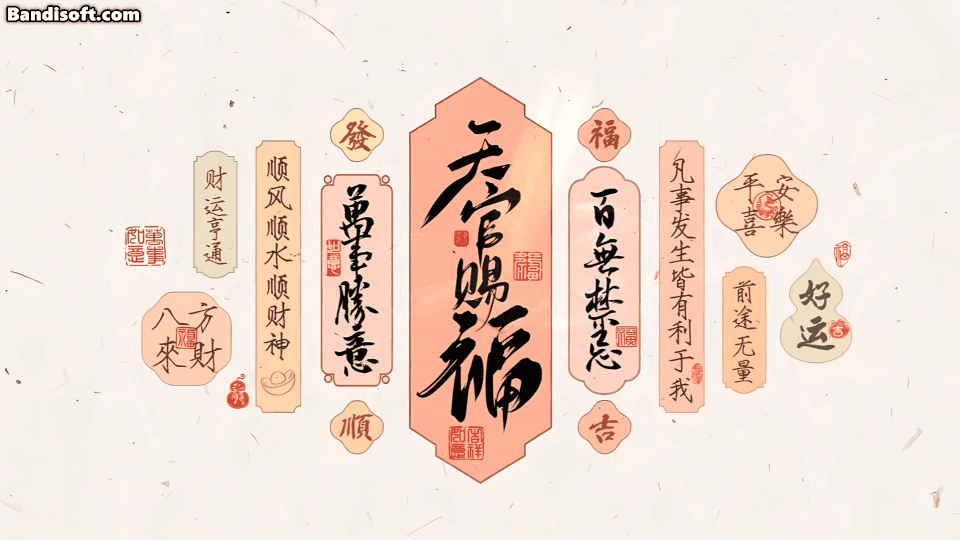 Bandisoft.com
天官賜福
發
福
萬事勝意
百無禁忌
順
吉
顺风顺水顺财神
凡事发生皆有利于我
财运亨通
平安喜樂
前途无量
好运
八方來財
萬事如意
吉祥如意